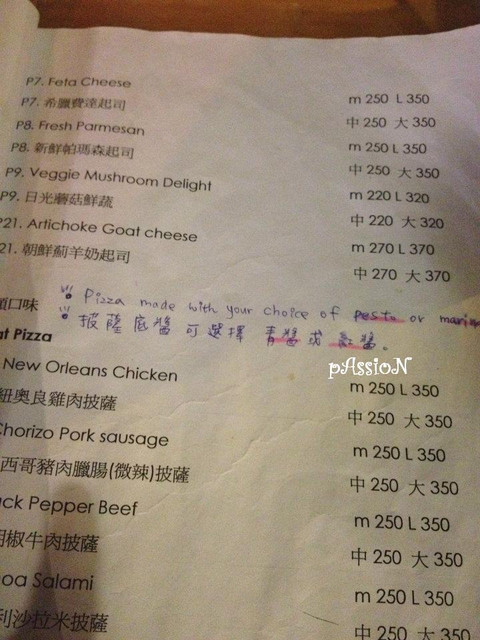 P7. Feta Cheese m 250 L 350
P7. 希臘費達起司 中 250 大 350
P8. Fresh Parmesan m 250 L 350
P8. 新鮮帕瑪森起司 中 250 大 350
P9. Veggie Mushroom Delight m 220 L 320
P9. 日光蘑菇鮮蔬 中 220 大 320
P21. Artichoke Goat cheese m 270 L 370
21. 朝鮮薊羊奶起司 中 270 大 370
Pizza made with your choice of pesto or marin
口味 披薩底醬可選擇 青醬或 醬。
at Pizza
pAssioN
New Orleans Chicken m 250 L 350
紐奧良雞肉披薩 中 250 大 350
Chorizo Pork sausage m 250 L 350
西哥豬肉臘腸(微辣)披薩 中 250 大 350
ck Pepper Beef m 250 L 350
胡椒牛肉披薩 中 250 大 350
oa Salami m 250 L 350
利沙拉米披薩 中 250 大 350